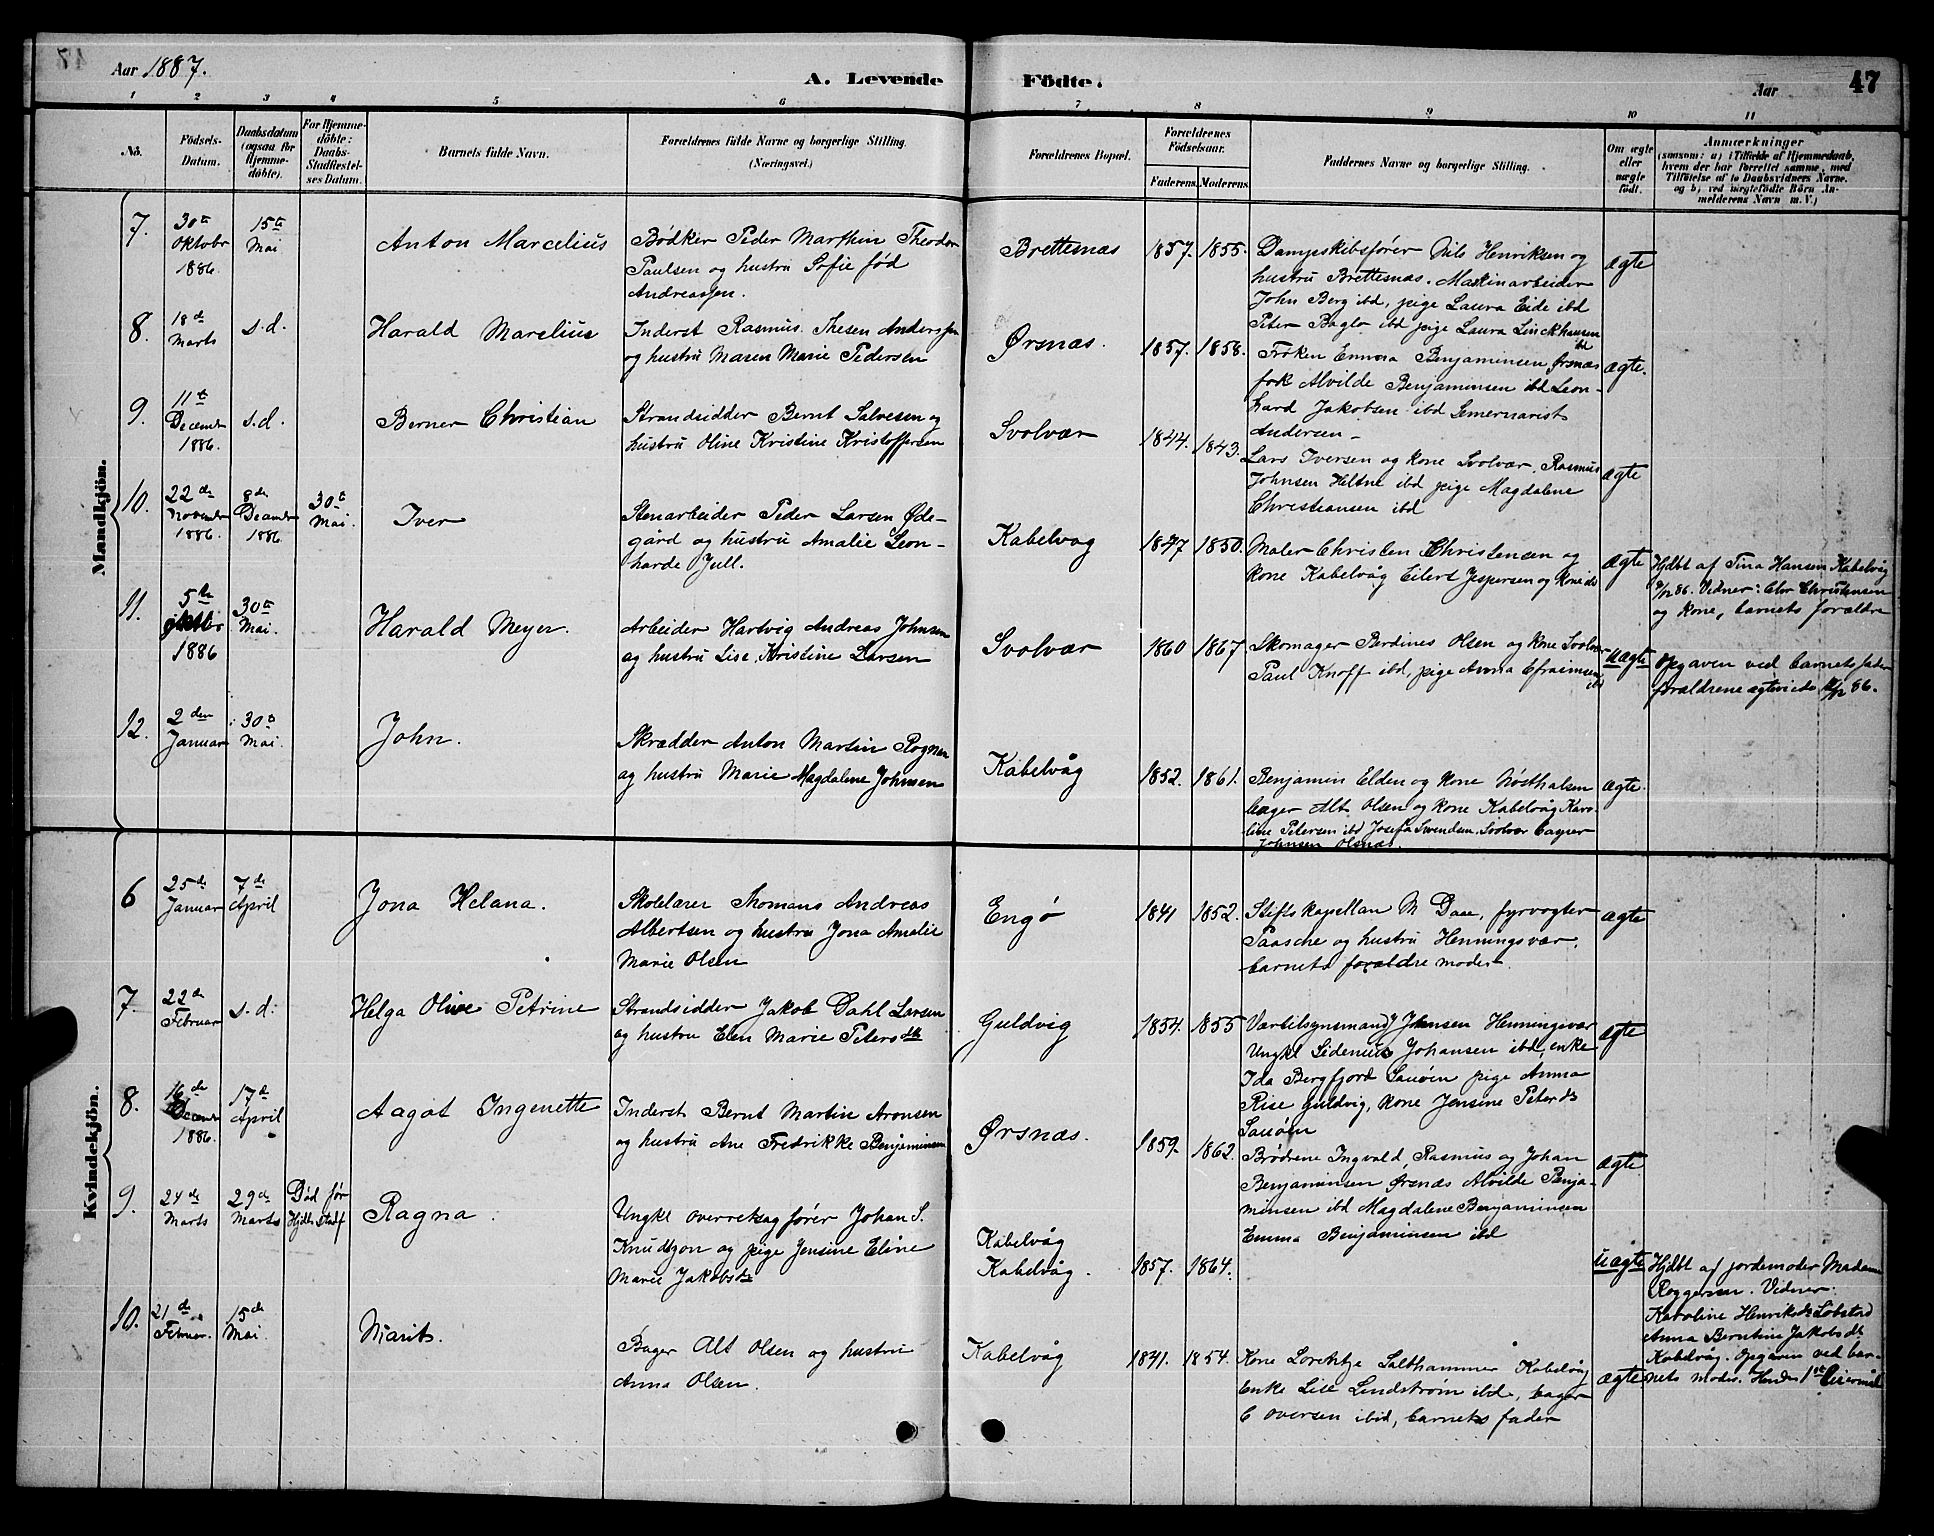 Aar 1887.
A. Levende
Födte.
Aar
47
1 2 3 4 5 6 7 8 9 10 11
No.
Födsels-Datum.
Daabsdatum (ogsaa for Hjemmedöbte).
For Hjemmedöbte: Daabs-Stadfæstelses Datum.
Barnets fulde Navn.
Forældrenes fulde Navne og borgerlige Stilling. (Næringsvei.)
Forældrenes Bopæl.
Forældrenes Födselsaar.
Faderens. Moderens.
Faddernes Navne og borgerlige Stilling.
Om ægte eller uægte født.
Anmærkninger
(saasom: a) i Tilfælde af Hjemmedaab, hvem der har forrettet samme, med Tilföielse af to Daabsvidners Navne, og b) ved uægtefödte Börn Anmelderens Navn m. V.)
Mandkjön.
7.
30te Oktobr 1886.
15te Mai
Anton Marcelius
Bödker Peder Marthin Theodor
Paulsen og hustru Sofie fød
Andreassen.
Brettesnæs
1857. 1855.
Dampskibsfører Nils Henriksen og
hustru Brettesnæs. Maskinarbeider
John Berg ibd, pige Laura Eide ibd
Peter Bagle ibd pige Laura Linckhausen
ibd
ægte
8.
18de Marts
s.d.
Harald Marelius
Inderst Rasmus Thesen Anderssen
og hustru Maren Marie Pedersen
Ørsnæs.
1857. 1858.
Frøken Emma Benjaminsen Ørsnæs
frk Alvilde Benjaminsen ibd Leon-
hard Jakobsen ibd Semernarist
Andersen
ægte.
9.
11te Decembr 1886.
s.d.
Berner Christian
Strandsidder Bernt Salvesen og
hustru Oline Kristine Kristoffersen
Svolvær
1844. 1843.
Lars Iversen og kone Svolvær. Rasmus
Johnsen Heltne ibd pige Magdalene
Christiansen ibd
ægte
10.
22de Novembr 1886.
8de Decembr 1886
30te Mai.
Iver
Stenarbeider Peder Larsen Øde-
gård og hustru Amalie Leon-
harde Jull.
Kabelvåg
1847 1850.
Maler Christen Christensen og
kone Kabelvåg Eilert Jespersen og kone ibd
ægte
Hjdbt af Tina Hansen Kabelvåg
8/12 86. Vidner: Chr Christensen
og kone, barnets forældre
11.
5te Oktbr 1886
30te Mai.
Harald Meyer.
Arbeider Hartvig Andreas Johnsen
og hustru Lise Kristine Larsen
Svolvær
1860 1867
Skomager Berdines Olsen og kone Svolvær
Paul Knoff ibd, pige Anna Efraimsen
ibd
uægte
Opgaven ved barnets fader
forældrene ægteviede /12 86.
12.
2den Januar
30te Mai.
John.
Skrædder Anton Martin Rognan
og hustru Marie Magdalene Johnsen
Kabelvåg
1852. 1861.
Benjamin Elden og kone Nøstholsen
bager Alt Olsen og kone Kabelvåg Karo-
line Petersen ibd Josefa Svendsen Svolvær bager
Johnsen Olsnæs.
ægte.
Kvindekjön.
6
25de Januar
7de April
Jona Helana.
Skolelærer Thomans Andreas
Albertsen og hustru Jona Amalie
Marie Olsen
Engø
1841 1852.
Stiftskapellan M Daae, fyrvogter
Paasche og hustru Henningsvær.
barnets forældre moder.
ægte
7.
22de Februar
s.d.
Helga Olive Petrine
Strandsidder Jakob Dahl Larsen
og hustru Elen Marie Petersdtr
Guldvig
1854. 1855
Værtilsynsmand J Jensen Henningsvær
Ungkl Sidenius Johansen ibd, enke
Ida Bergfjord Sauøen pige Anna
Rise Guldvig, kone Jensine Petersdtr
Sauøen
ægte
8.
16de Decembr 1886.
17de April
Aagot Ingenette
Inderst Bernt Martin Aronsen
og hustru Ane Fredrikke Benjaminsen
Ørsnæs.
1859. 1862.
Brødrene Ingvald, Rasmus og Johan
Benjaminsen Ørsnæs Alvilde Benja-
minsen ibd Magdalene Benjaminsen
Emma Benjaminsen ibd
ægte
9.
24de Marts
29de Marts
Død før Hjdb. stadf
Ragna.
Ungkl overretsagfører Johan S.
Knudtzon og pige Jensine Eline
Marie Jakobsdtr
Kabelvåg
Kabelvåg.
1857. 1864.
uægte
Hjdbt af jordemoder Madame
Roggersen. Vidner:
Karoline Henriksdtr Løbstad
Anna Berntine Jakobsdtr
Kabelvåg. Opgaven ved bar-
nets moder. Hendes 1ste leiermål
10.
21de Februar.
15de Mai.
Marit.
Bager Alt Olsen og hustru
Anna Olsen.
Kabelvåg
1841. 1854.
Kone Lorentze Salthammer Kabelvåg
Enke Lise Lindstrøm ibd, bager
C Oversen ibid, barnets fader
ægte